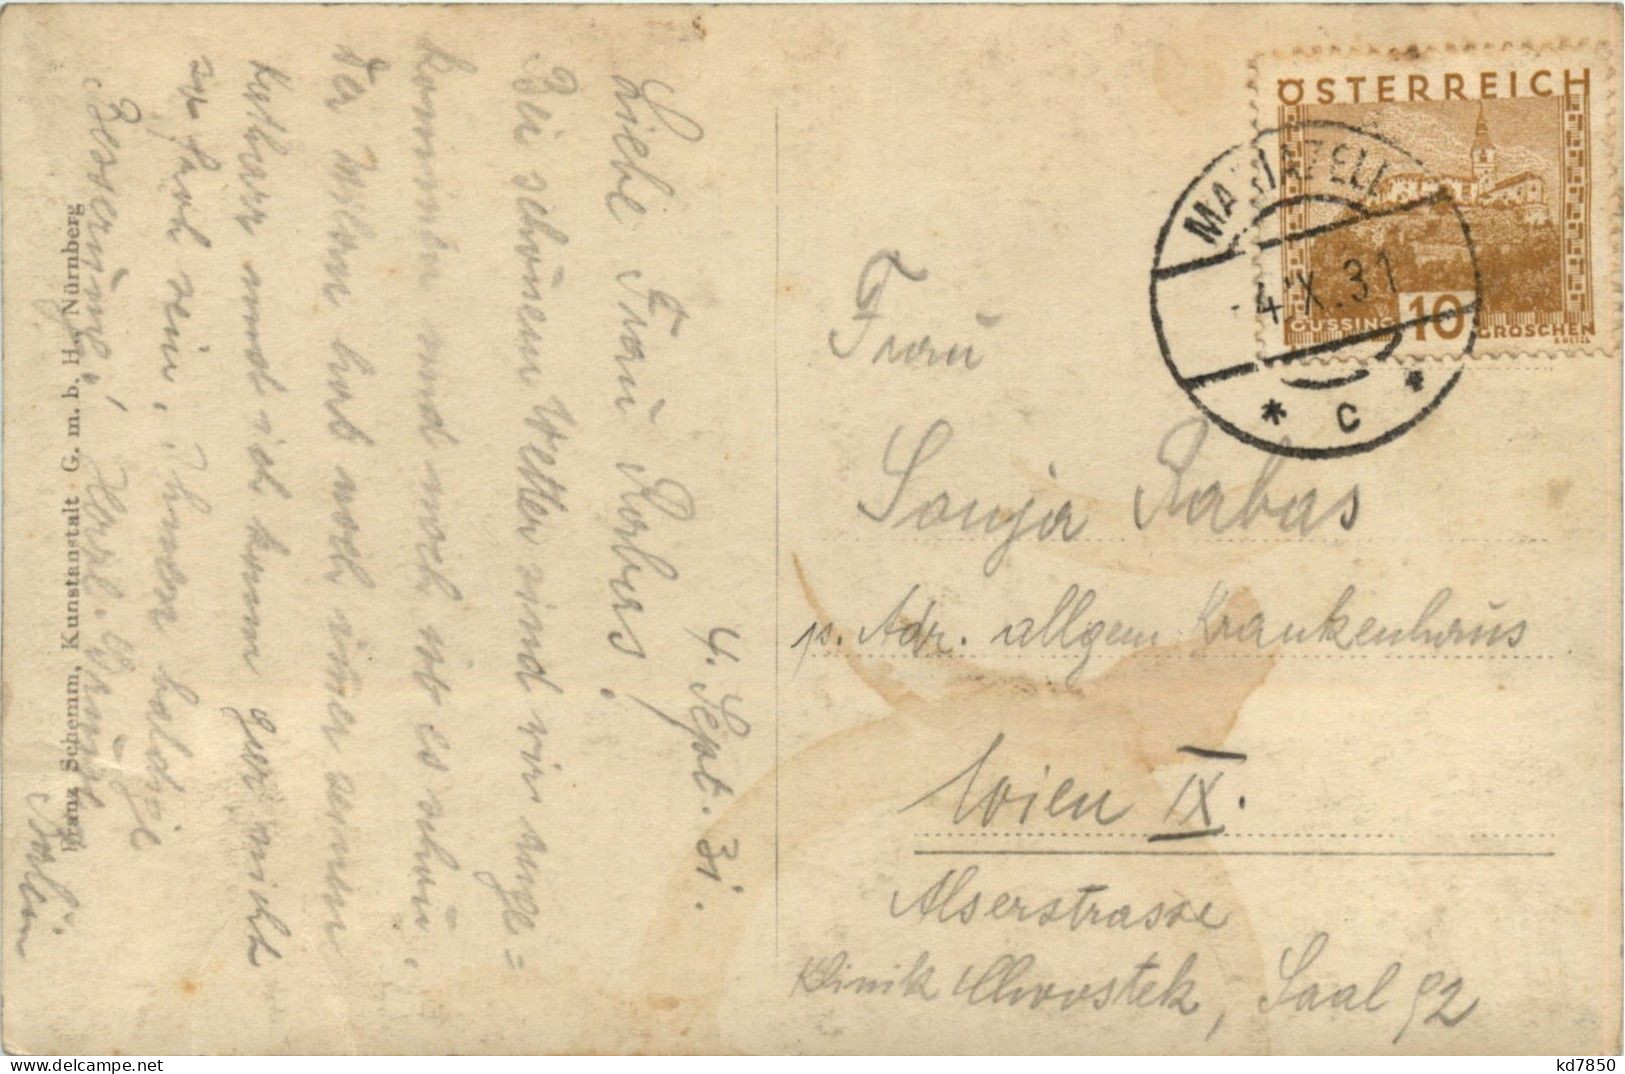 4. Sept. 31.
Liebe Frau Rabas!
Bei schönem Wetter sind wir ange=
kommen und noch ist es schön.
Der Milan hat noch immer seinen
und ich kann gar nicht
sein. Ihnen baldige
Besserung! Herzl. Grüsse
Franz Schemm, Kunstanstalt G. m. b. H., Nürnberg
ÖSTERREICH
GÜSSING 10 GROSCHEN
MARIAZELL
-4.IX.31
* C *
Frau
Sonja Rabas
p. Adr. allgem Krankenhaus
Wien IX.
Alserstrasse
Klinik Chvostek, Saal 92
kd7850